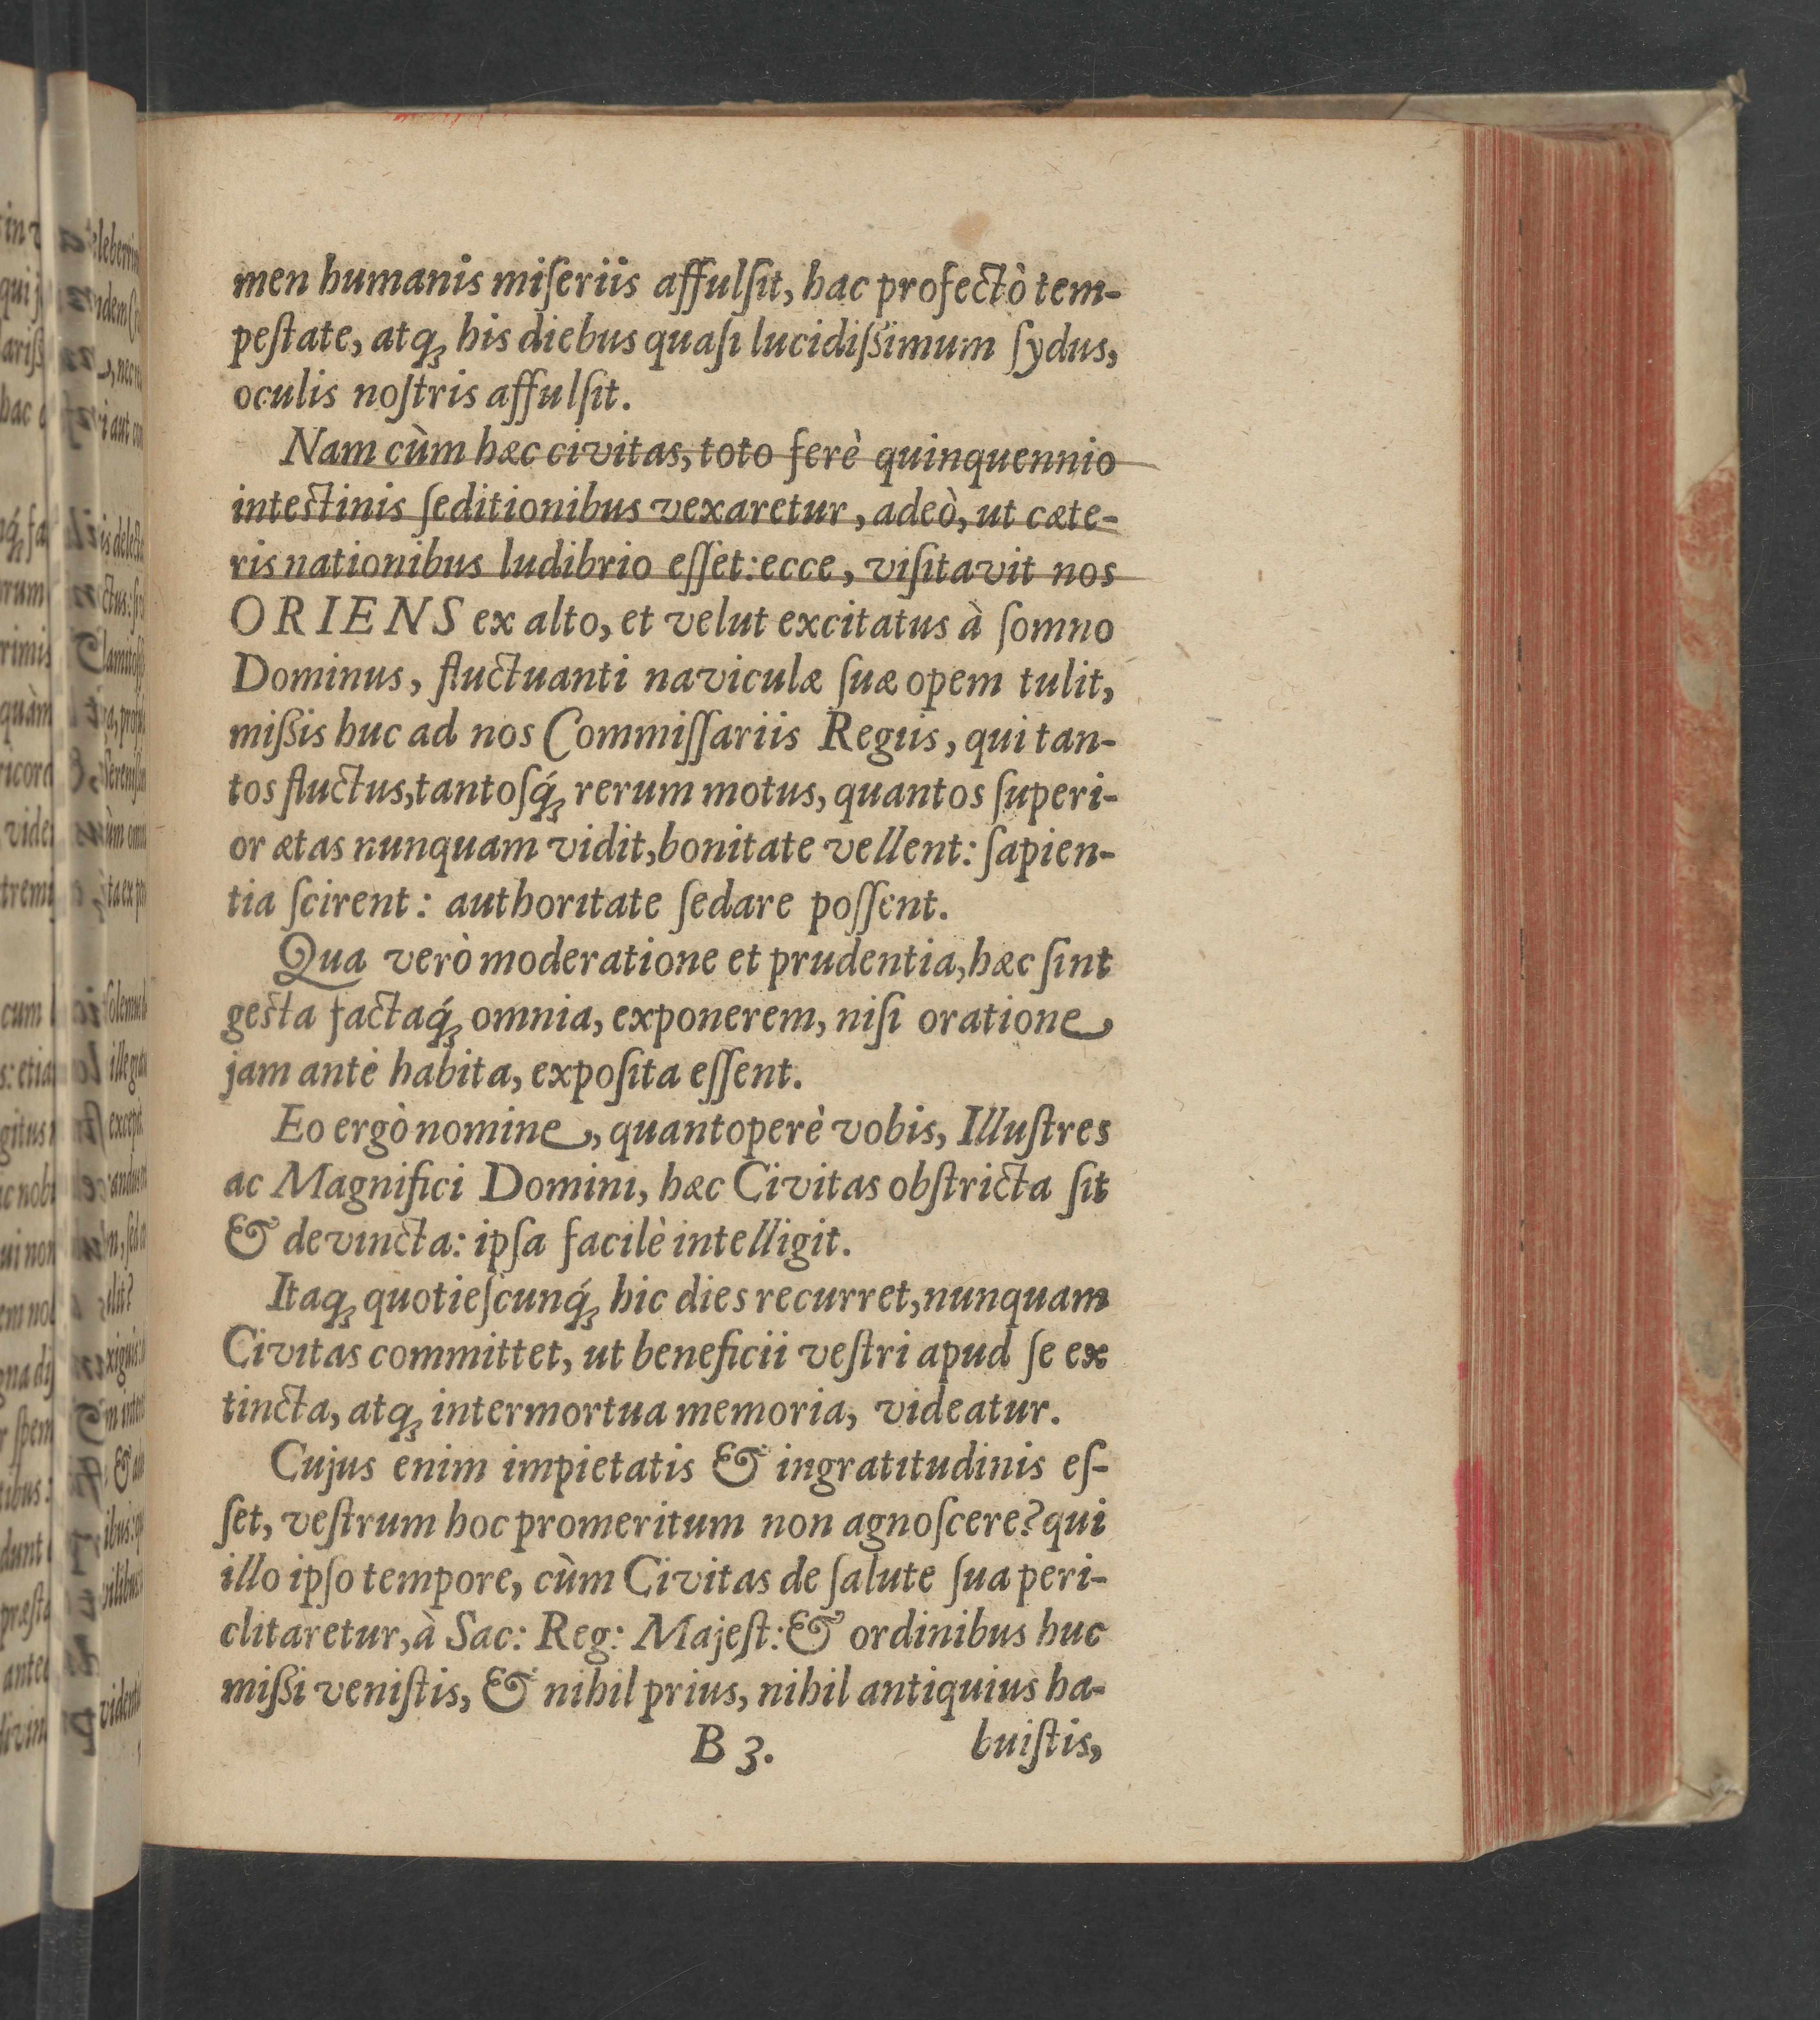 men humanis miſeriis affulſit, hac profectò tem-
peſtate, atq́; his diebus quaſi lucidiſsimum ſydus,
oculis noſtris affulſit.
Nam cùm hæc civitas, toto ferè quinquennio
inteſtinis ſeditionibus vexaretur, adeò, ut cæte-
ris nationibus ludibrio eſſet: ecce, viſitavit nos
ORIENS ex alto, et velut excitatus à ſomno
Dominus, fluctuanti naviculæ ſuæ opem tulit,
miſsis huc ad nos Commiſſariis Regiis, qui tan-
tos fluctus, tantoſq́; rerum motus, quantos ſuperi-
or ætas nunquam vidit, bonitate vellent: ſapien-
tia ſcirent: authoritate ſedare poſſent.
Qua verò moderatione et prudentia, hæc ſint
geſta factaq́; omnia, exponerem, niſi oratione,
jam antè habita, expoſita eſſent.
Eo ergò nomine, quantoperè vobis, Illuſtres
ac Magnifici Domini, hæc Civitas obſtricta ſit
& devincta: ipſa facilè intelligit.
Itaq; quotieſcunq́; hic dies recurret, nunquam
Civitas committet, ut beneficii veſtri apud ſe ex
tincta, atq; intermortua memoria, videatur.
Cujus enim impietatis & ingratitudinis eſ-
ſet, veſtrum hoc promeritum non agnoſcere? qui
illo ipſo tempore, cùm Civitas de ſalute ſua peri-
clitaretur, à Sac: Reg: Majeſt: & ordinibus huc
miſsi veniſtis, & nihil prius, nihil antiquius ha-
B 3.
buiſtis,